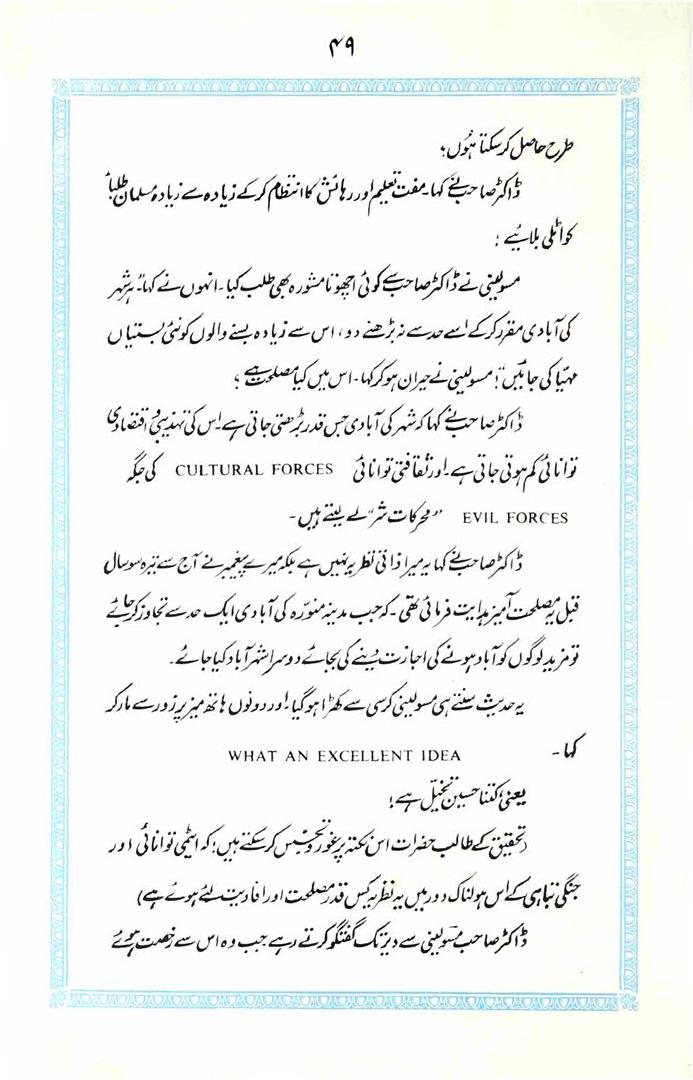 ۴۹
طرح حاصل کر سکتا ہُوں؟
ڈاکٹر صاحب نے کہا۔ مفت تعلیم اور رہائش کا انتظام کر کے زیادہ سے زیادہ مسلمان طلباً
کو اٹلی بلائیے!
مسولینی نے ڈاکٹر صاحب سے کوئی اچھوتا مشورہ بھی طلب کیا۔ انہوں نے کہا "ہر شہر
کی آبادی مقرر کر کے اسے حد سے نہ بڑھنے دو، اس سے زیادہ بسنے والوں کو نئی بستیاں
مہیّا کی جائیں"! مسولینی نے حیران ہو کر کہا۔ اس میں کیا مصلحت ہے؟
ڈاکٹر صاحب نے کہا کہ شہر کی آبادی جس قدر بڑھتی جاتی ہے۔ اس کی تہذیبی و اقتصادی
توانائی کم ہوتی جاتی ہے۔ اور ثقافتی توانائی CULTURAL FORCES کی جگہ
EVIL FORCES "محرکات شر" لے لیتے ہیں۔
ڈاکٹر صاحب نے کہا یہ میرا ذاتی نظریہ نہیں ہے بلکہ میرے پیغمبر نے آج سے تیرہ سو سال
قبل یہ مصلحت آمیز ہدایت فرمائی تھی۔ کہ جب مدینہ منورہ کی آبادی ایک حد سے تجاوز کر جائے
تو مزید لوگوں کو آباد ہونے کی اجازت دینے کی بجائے دوسرا شہر آباد کیا جائے۔
یہ حدیث سنتے ہی مسولینی کرسی سے کھڑا ہو گیا! اور دونوں ہاتھ میز پر زور سے مار کر
کہا۔ WHAT AN EXCELLENT IDEA
یعنی کتنا حسین تخیّل ہے!
(تحقیق کے طالب حضرات اس نکتہ پر غور و تجسس کر سکتے ہیں؛ کہ ایٹمی توانائی اور
جنگی تباہی کے اس ہولناک دور میں یہ نظریہ کس قدر مصلحت اور افادیت لئے ہوئے ہے)
ڈاکٹر صاحب مسولینی سے دیر تک گفتگو کرتے رہے جب وہ اس سے رخصت ہوئے